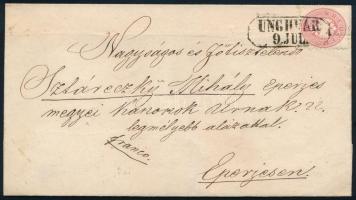 UNGHVÁR
9. JUL.
Nagyságos és Főtisztelendő
Sztáreczky Mihály eperjes
megyei Kanonok Urnak
legmélyebb alázattal.
franco.
Eperjesen.